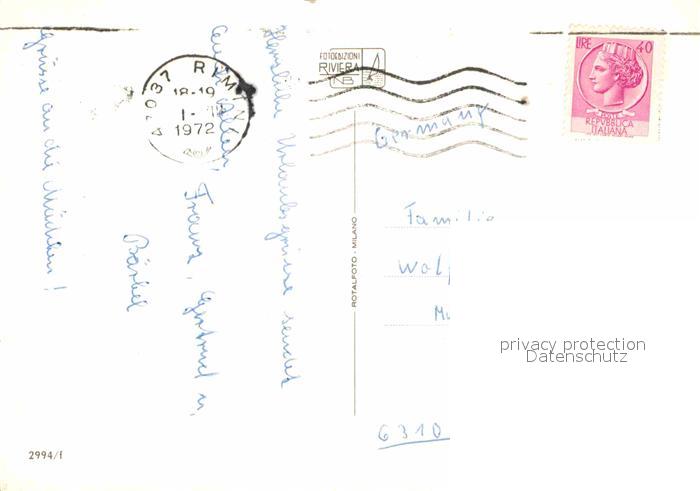 Herzliche Urlaubsgrüsse sendet
Euch Allen, Franz, Gertrud u.
Bärbel
Grüsse an die Mädchen!
47037 RIMINI
18-19
1972
FOTOEDIZIONI
RIVIERA
LIRE 40
POSTE
REPVBBLICA
ITALIANA
Germany
Familie
Wolf
6310
ROTALFOTO - MILANO
privacy protection
Datenschutz
2994/f